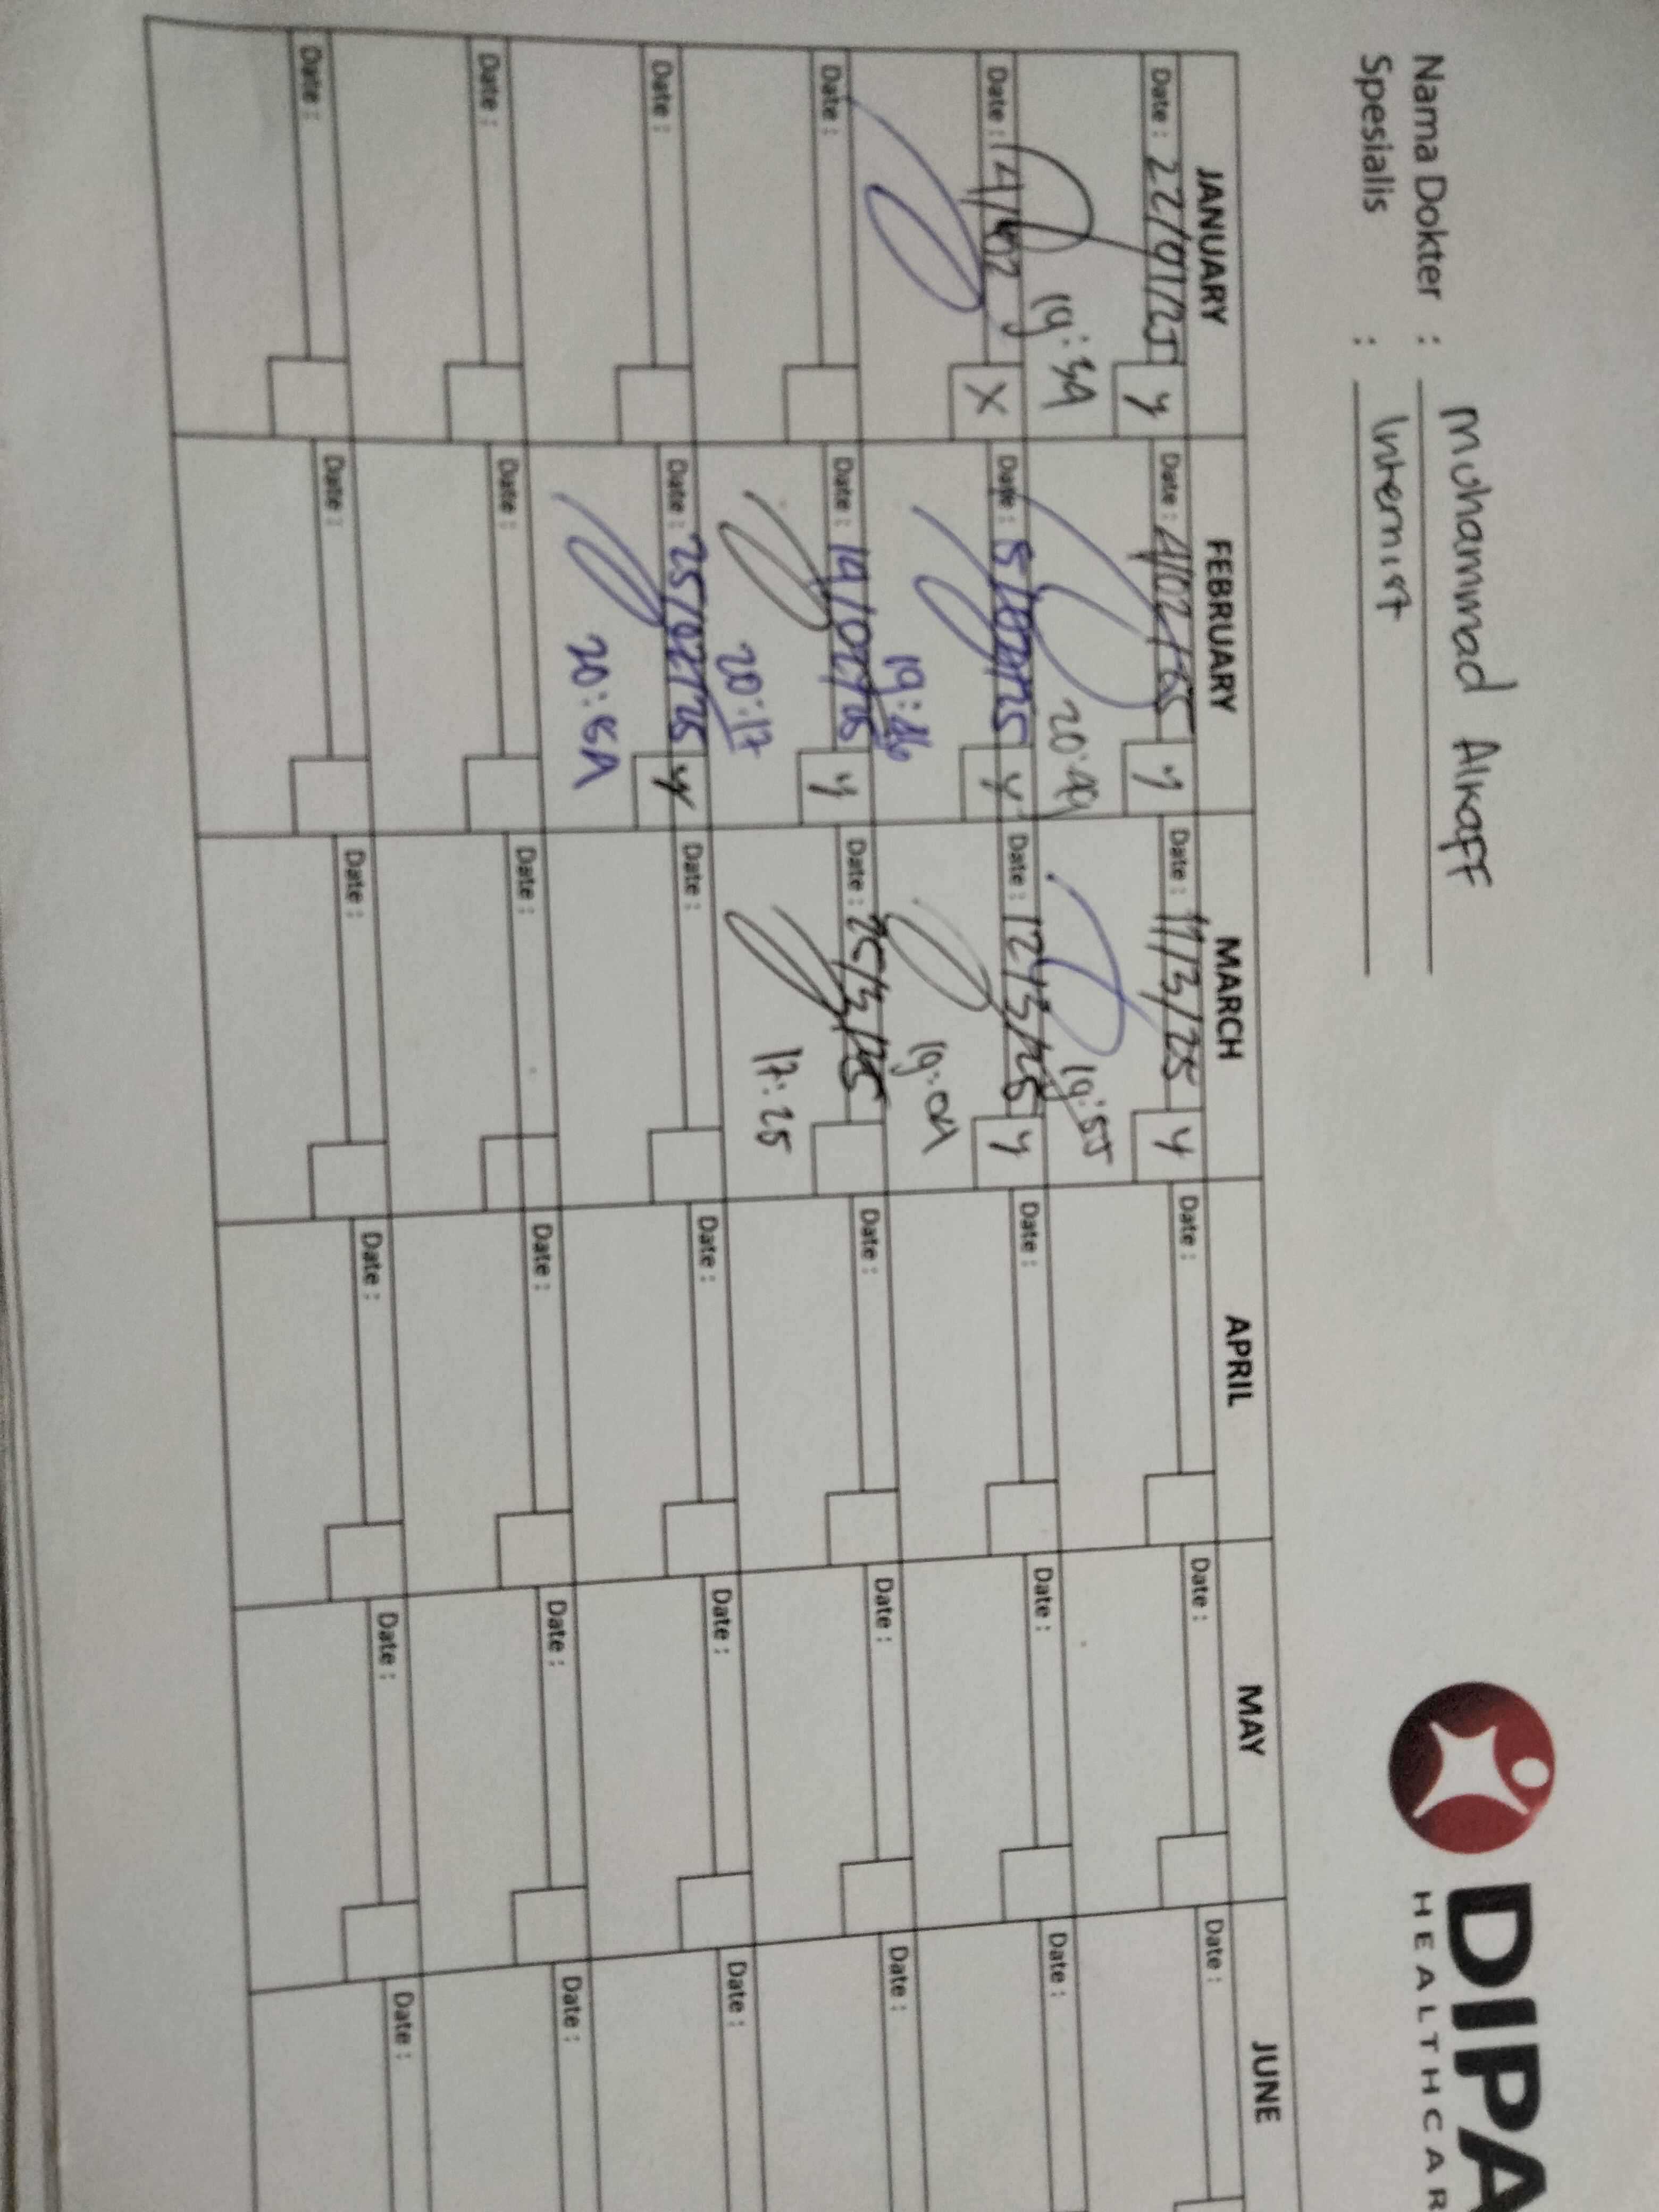 DIPA
HEALTHCAR
Nama Dokter : Muhammad Alkaff
Spesialis : Internist
JANUARY FEBRUARY MARCH APRIL MAY JUNE
Date : 22/01/25 y Date : 4/02/25 y Date : 11/3/25 y Date : Date : Date :
19:39 20:49 19:55
Date : 14/02 X Date : 5/02/25 y Date : 12/3/25 y Date : Date : Date :
19:46 19:09
Date : Date : 19/02/25 y Date : 25/3/25 Date : Date : Date :
20:17 17:25
Date : Date : 25/02/25 y Date : Date : Date : Date :
20:59
Date : Date : Date : Date : Date : Date :
Date : Date : Date : Date : Date : Date :